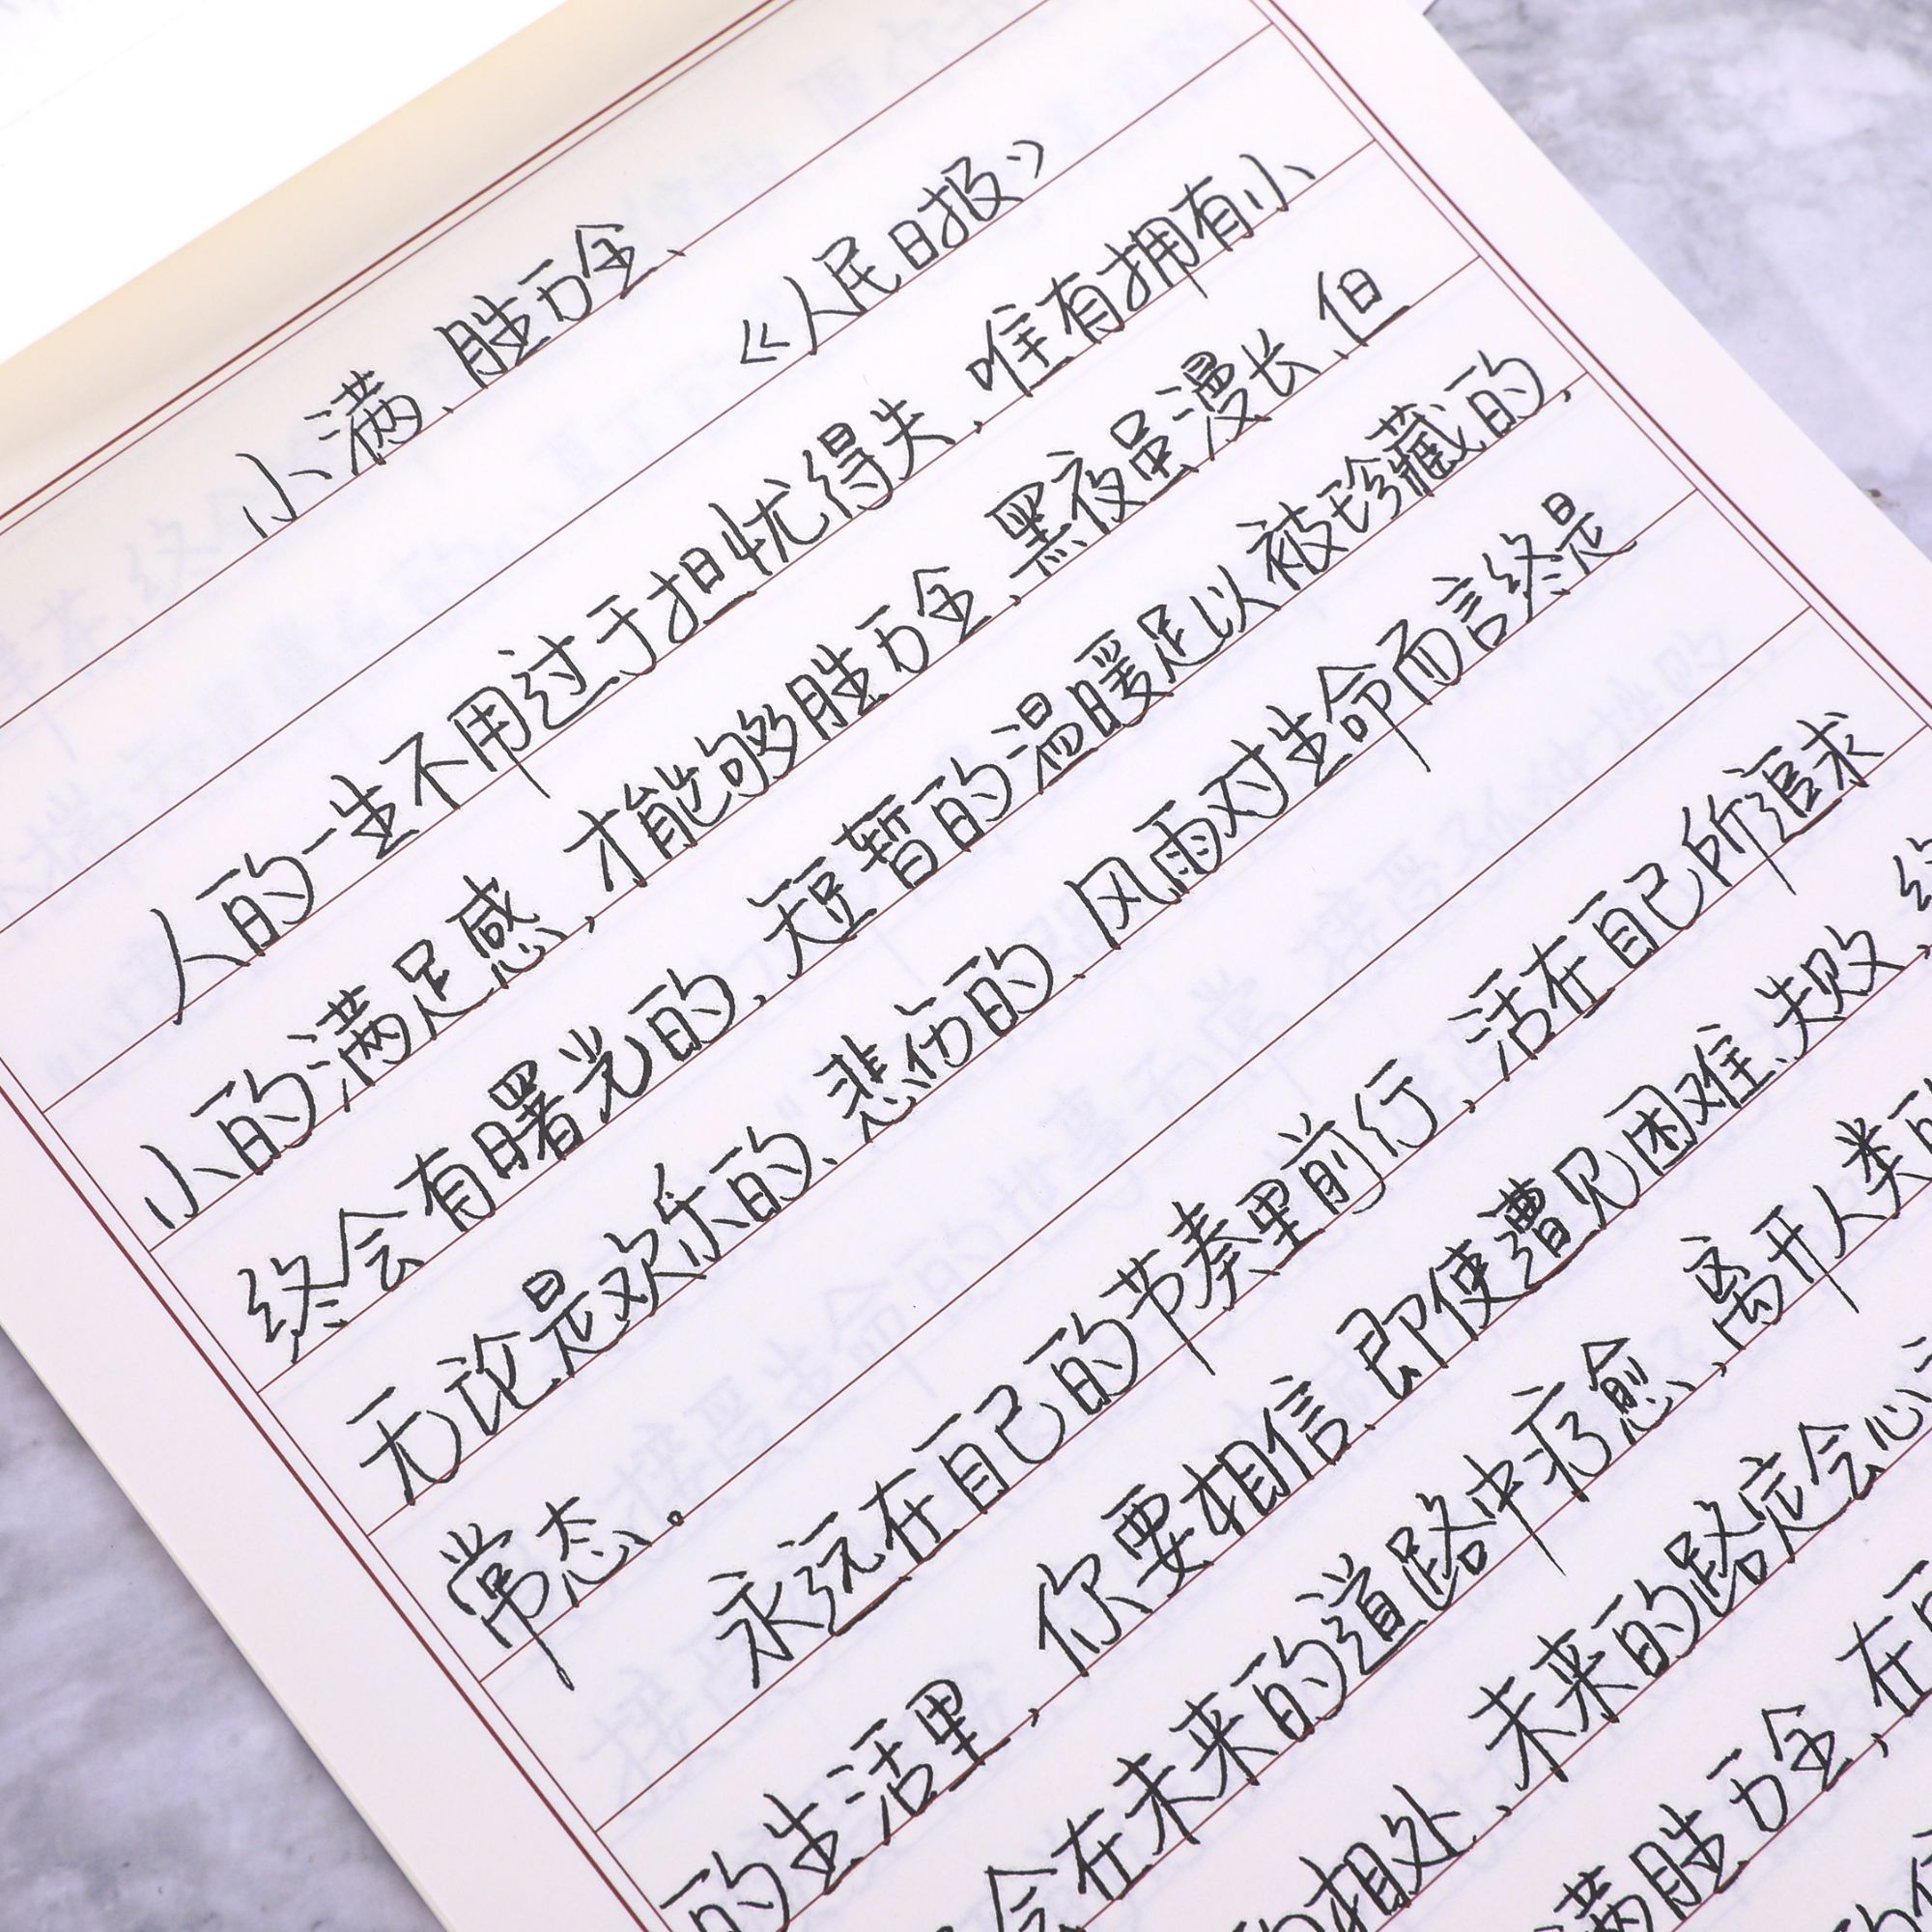 小满、胜万金、
《人民日报》
人的一生不用过于担忧得失、唯有拥有小
小的满足感，才能够胜万金、黑夜虽漫长、但
终会有曙光的、短暂的温暖足以被珍藏的，
无论是欢乐的、悲伤的、风雨对生命而言终是
常态。
永远在自己的节奏里前行、活在自己所追求
的生活里，你要相信、即使遭见困难、失败、终
会在未来的道路中疗愈、离开人类
的相处、未来的路定会心
满胜万金、在